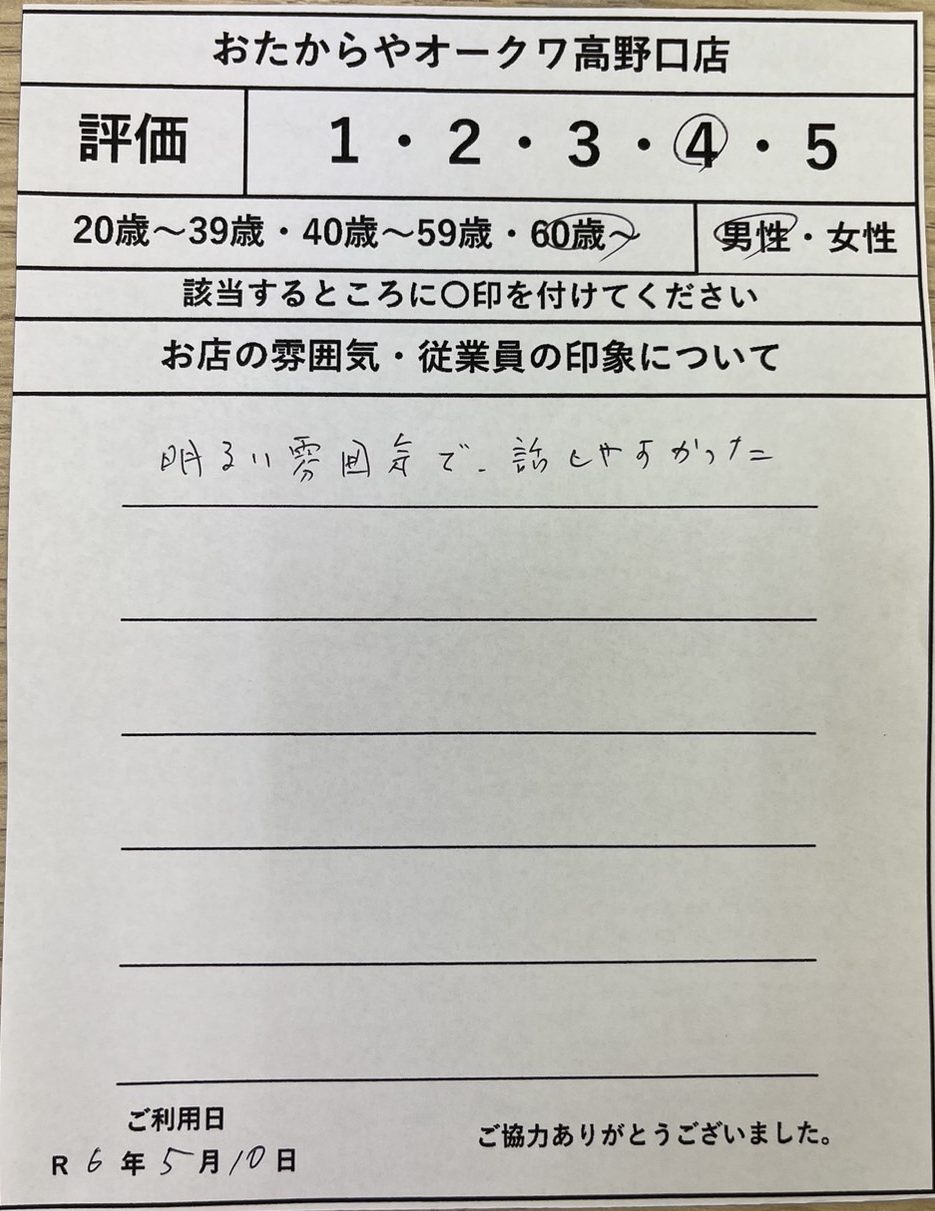 おたからやオークワ高野口店
評価 1・2・3・4・5
20歳～39歳・40歳～59歳・60歳～ 男性・女性
該当するところに〇印を付けてください
お店の雰囲気・従業員の印象について
明るい雰囲気で、話しやすかった
ご利用日
R 6 年 5 月 10 日
ご協力ありがとうございました。